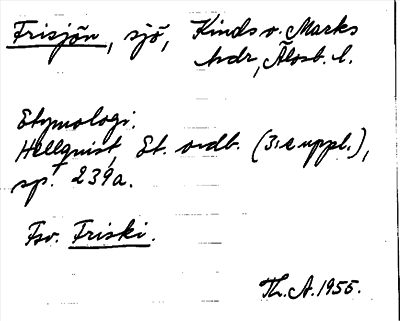 Frisjön, sjö, Kinds o. Marks
hdr, Älvsb. l.
Etymologi.
Hellquist, Et. ordb. (3:e uppl.),
sp. 239a.
Fsv. Friski.
Th. A. 1955.